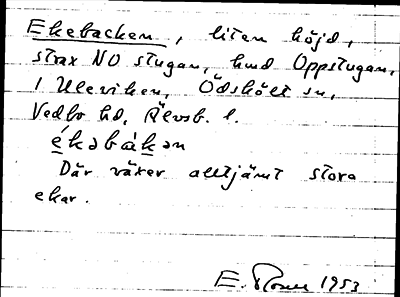 Ekebacken, liten höjd,
strax NO stugan, hmd Oppstugan,
i Uleviken, Ödskölt sn,
Vedbo hd, Älvsb. l.
ékəbàkən
Där växer alltjämt stora
ekar.
E. 1953